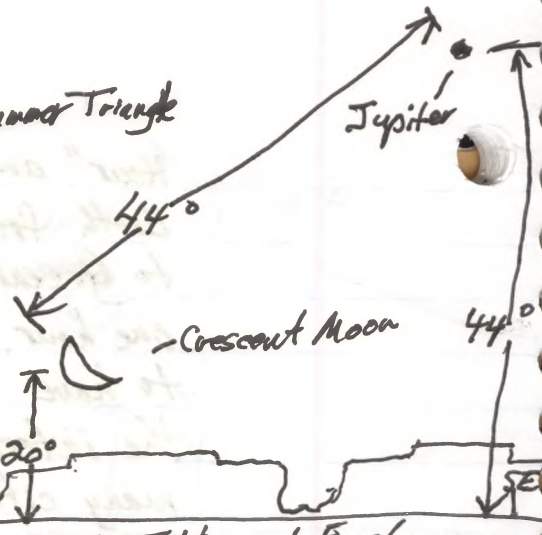 Triangle
Jupiter
44°
Crescent Moon
44°
20°
SE